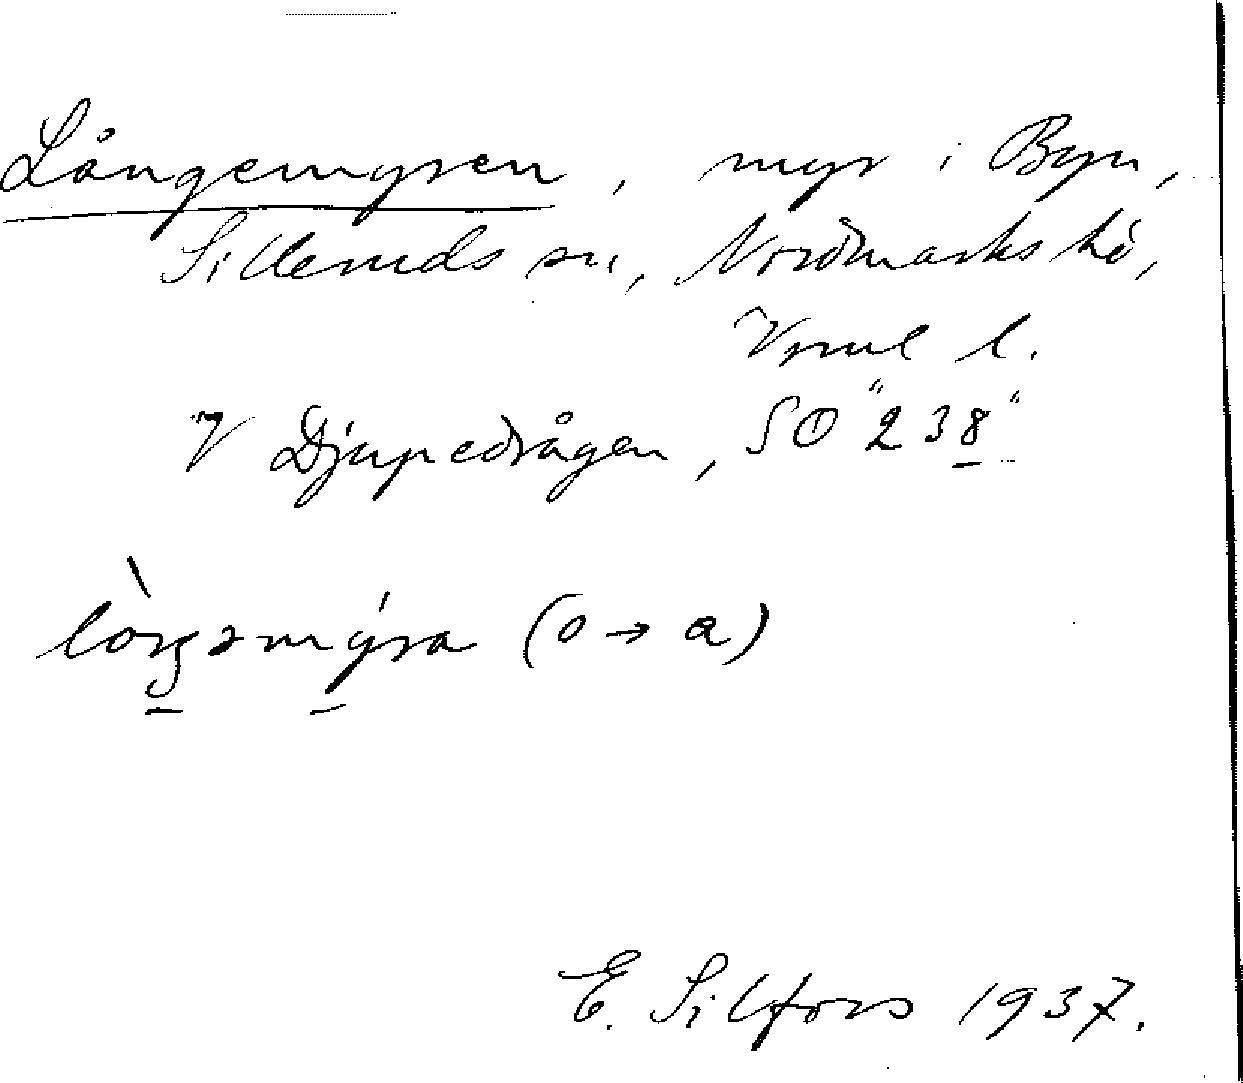 Långemyren, myr i Byn,
Silleruds sn, Nordmarks hd,
Vrml l.
V Djupedrågen, SO "238"
(o → a)
E. Silfors 1937.